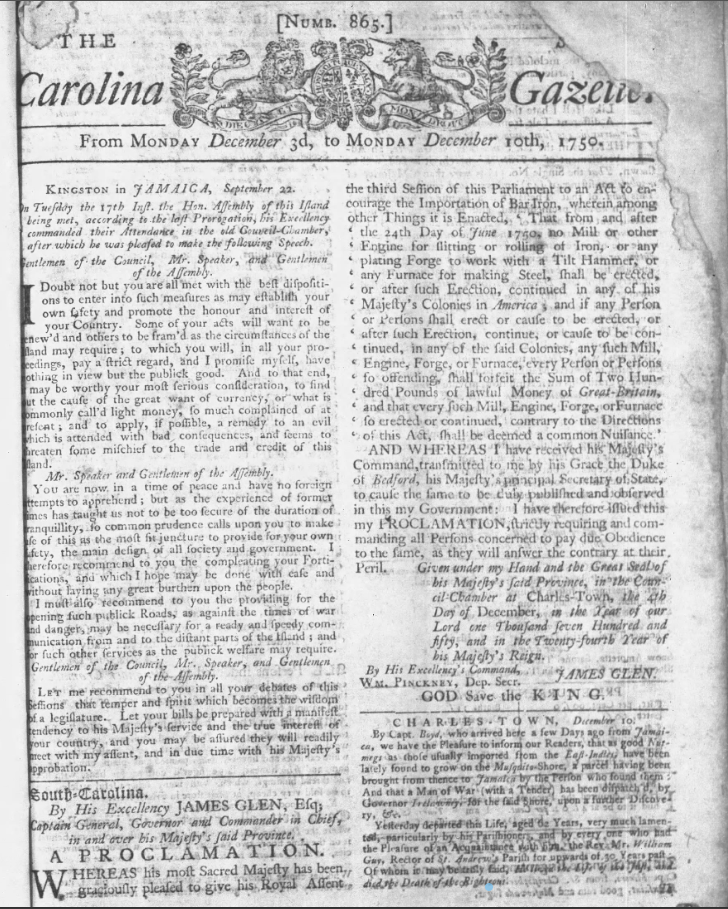 [NUMB. 865.]
THE
Carolina Gazette.
From MONDAY December 3d, to MONDAY December 10th, 1750.
KINGSTON in JAMAICA, September 22.
On Tuesday the 17th Inst. the Hon. Assembly of this Island
being met, according to the last Prorogation, his Excellency
commanded their Attendance in the old Council-Chamber,
after which he was pleased to make the following Speech.
Gentlemen of the Council, Mr. Speaker, and Gentlemen
of the Assembly.
I Doubt not but you are all met with the best dispositi-
ons to enter into such measures as may establish your
own safety and promote the honour and interest of
your Country. Some of your acts will want to be
renew'd and others to be fram'd as the circumstances of the
sland may require; to which you will, in all your pro-
eedings, pay a strict regard, and I promise myself, have
othing in view but the publick good. And to that end,
may be worthy your most serious consideration, to find
ut the cause of the great want of currency, or what is
ommonly call'd light money, so much complained of at
resent; and to apply, if possible, a remedy to an evil
which is attended with bad consequences, and seems to
hreaten some mischief to the trade and credit of this
sland.
Mr. Speaker and Gentlemen of the Assembly.
You are now in a time of peace and have no foreign
ttempts to apprehend; but as the experience of former
imes has taught us not to be too secure of the duration of
tranquillity, so common prudence calls upon you to make
se of this as the most fit juncture to provide for your own
afety, the main design of all society and government. I
herefore recommend to you the compleating your Forti-
ications, and which I hope may be done with ease and
without laying any great burthen upon the people.
I must also recommend to you the providing for the
opening such publick Roads, as against the times of war
and danger, may be necessary for a ready and speedy com-
munication from and to the distant parts of the Island; and
or such other services as the publick welfare may require.
Gentlemen of the Council, Mr. Speaker, and Gentlemen
of the Assembly.
LET me recommend to you in all your debates of this
Sessions that temper and spirit which becomes the wisdom
of a legislature. Let your bills be prepared with a manifest
tendency to his Majesty's service and the true interest of
your country, and you may be assured they will readily
meet with my assent, and in due time with his Majesty's
approbation.
South-Carolina.
By His Excellency JAMES GLEN, Esq;
Captain General, Governor and Commander in Chief,
in and over his Majesty's said Province.
A PROCLAMATION.
WHEREAS his most Sacred Majesty has been
graciously pleased to give his Royal Assent
the third Session of this Parliament to an Act to en-
courage the Importation of Bar Iron, wherein among
other Things it is Enacted, ‘ That from and after
‘ the 24th Day of June 1750, no Mill or other
‘ Engine for slitting or rolling of Iron, or any
‘ plating Forge to work with a Tilt Hammer, or
‘ any Furnace for making Steel, shall be erected,
‘ or after such Erection, continued in any of his
‘ Majesty's Colonies in America; and if any Person
‘ or Persons shall erect or cause to be erected, or
‘ after such Erection, continue, or cause to be con-
‘ tinued, in any of the said Colonies, any such Mill,
‘ Engine, Forge, or Furnace, every Person or Persons
‘ so offending, shall forfeit the Sum of Two Hun-
‘ dred Pounds of lawful Money of Great-Britain,
‘ and that every such Mill, Engine, Forge, or Furnace
‘ so erected or continued, contrary to the Directions
‘ of this Act, shall be deemed a common Nuisance.’
AND WHEREAS I have received his Majesty's
Command, transmitted to me by his Grace the Duke
of Bedford, his Majesty's principal Secretary of State,
to cause the same to be duly published and observed
in this my Government: I have therefore issued this
my PROCLAMATION, strictly requiring and com-
manding all Persons concerned to pay due Obedience
to the same, as they will answer the contrary at their
Peril. Given under my Hand and the Great Seal of
his Majesty's said Province, in the Coun-
cil-Chamber at Charles-Town, the 4th
Day of December, in the Year of our
Lord one Thousand seven Hundred and
fifty, and in the Twenty-fourth Year of
his Majesty's Reign.
By His Excellency's Command, JAMES GLEN.
WM. PINCKNEY, Dep. Secr.
GOD Save the KING.
CHARLES-TOWN, December 10.
By Capt. Boyd, who arrived here a few Days ago from Jamai-
ca, we have the Pleasure to inform our Readers, that as good Nut-
megs as those usually imported from the East-Indies have been
lately found to grow on the Musquito-Shore, a parcel having been
brought from thence to Jamaica by the Person who found them:
And that a Man of War (with a Tender) has been dispatch'd, by
Governor Trelawny, for the said Shore, upon a further Discove-
ry, &c.
Yesterday departed this Life, aged 62 Years, very much lamen-
ted, particularly by his Parishioners, and by every one who had
the Pleasure of an Acquaintance with him, the Rev. Mr. William
Guy, Rector of St. Andrew's Parish for upwards of 30 Years past
Of whom it may be truly said,
died the Death of the Righteous.